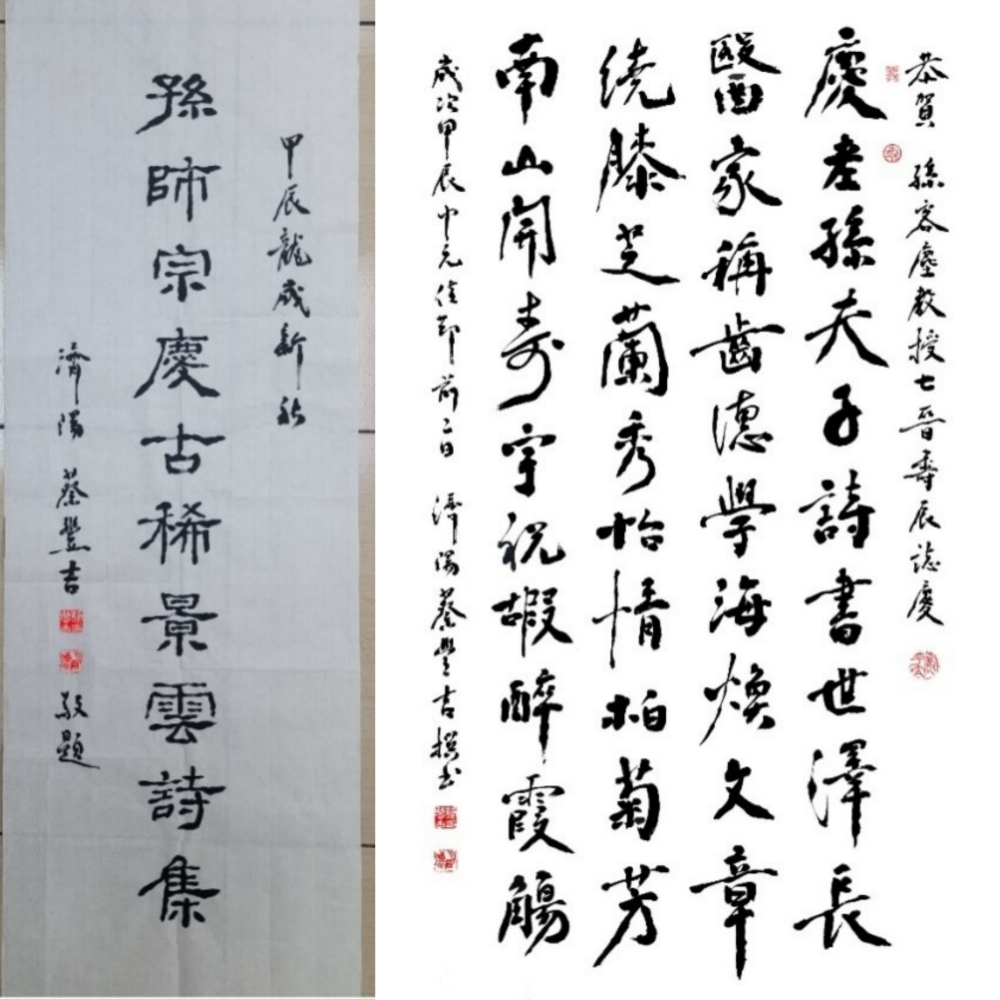 甲辰龍歲新秋
孫師宗慶古稀景雲詩集
濟陽 蔡豐吉 敬題
恭賀 孫容塵教授七晉壽辰誌慶
慶老孫夫子詩書世澤長
醫家稱齒德學海煥文章
繞膝芝蘭秀怡情柏菊芳
南山開壽宇祝嘏醉霞觴
歲次甲辰中元佳節前二日 濟陽蔡豐吉撰書